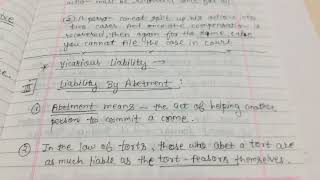 action must be
② A person cannot split up his actions into
two cases. And once the compensation is
recovered, then again for the same case
you cannot file the case in court.
Vicarious Liability →
III Liability By Abetment :
① Abetment means - the act of helping another
person to commit a crime.
② In the law of torts, those who abet a tort are
as much liable as the tort-feasors themselves.